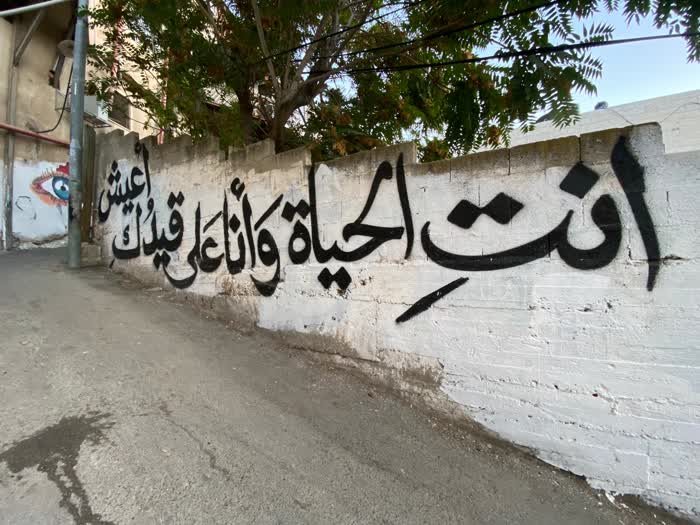 انتِ الحياة وَأنا عَلى قيدُك أعيش